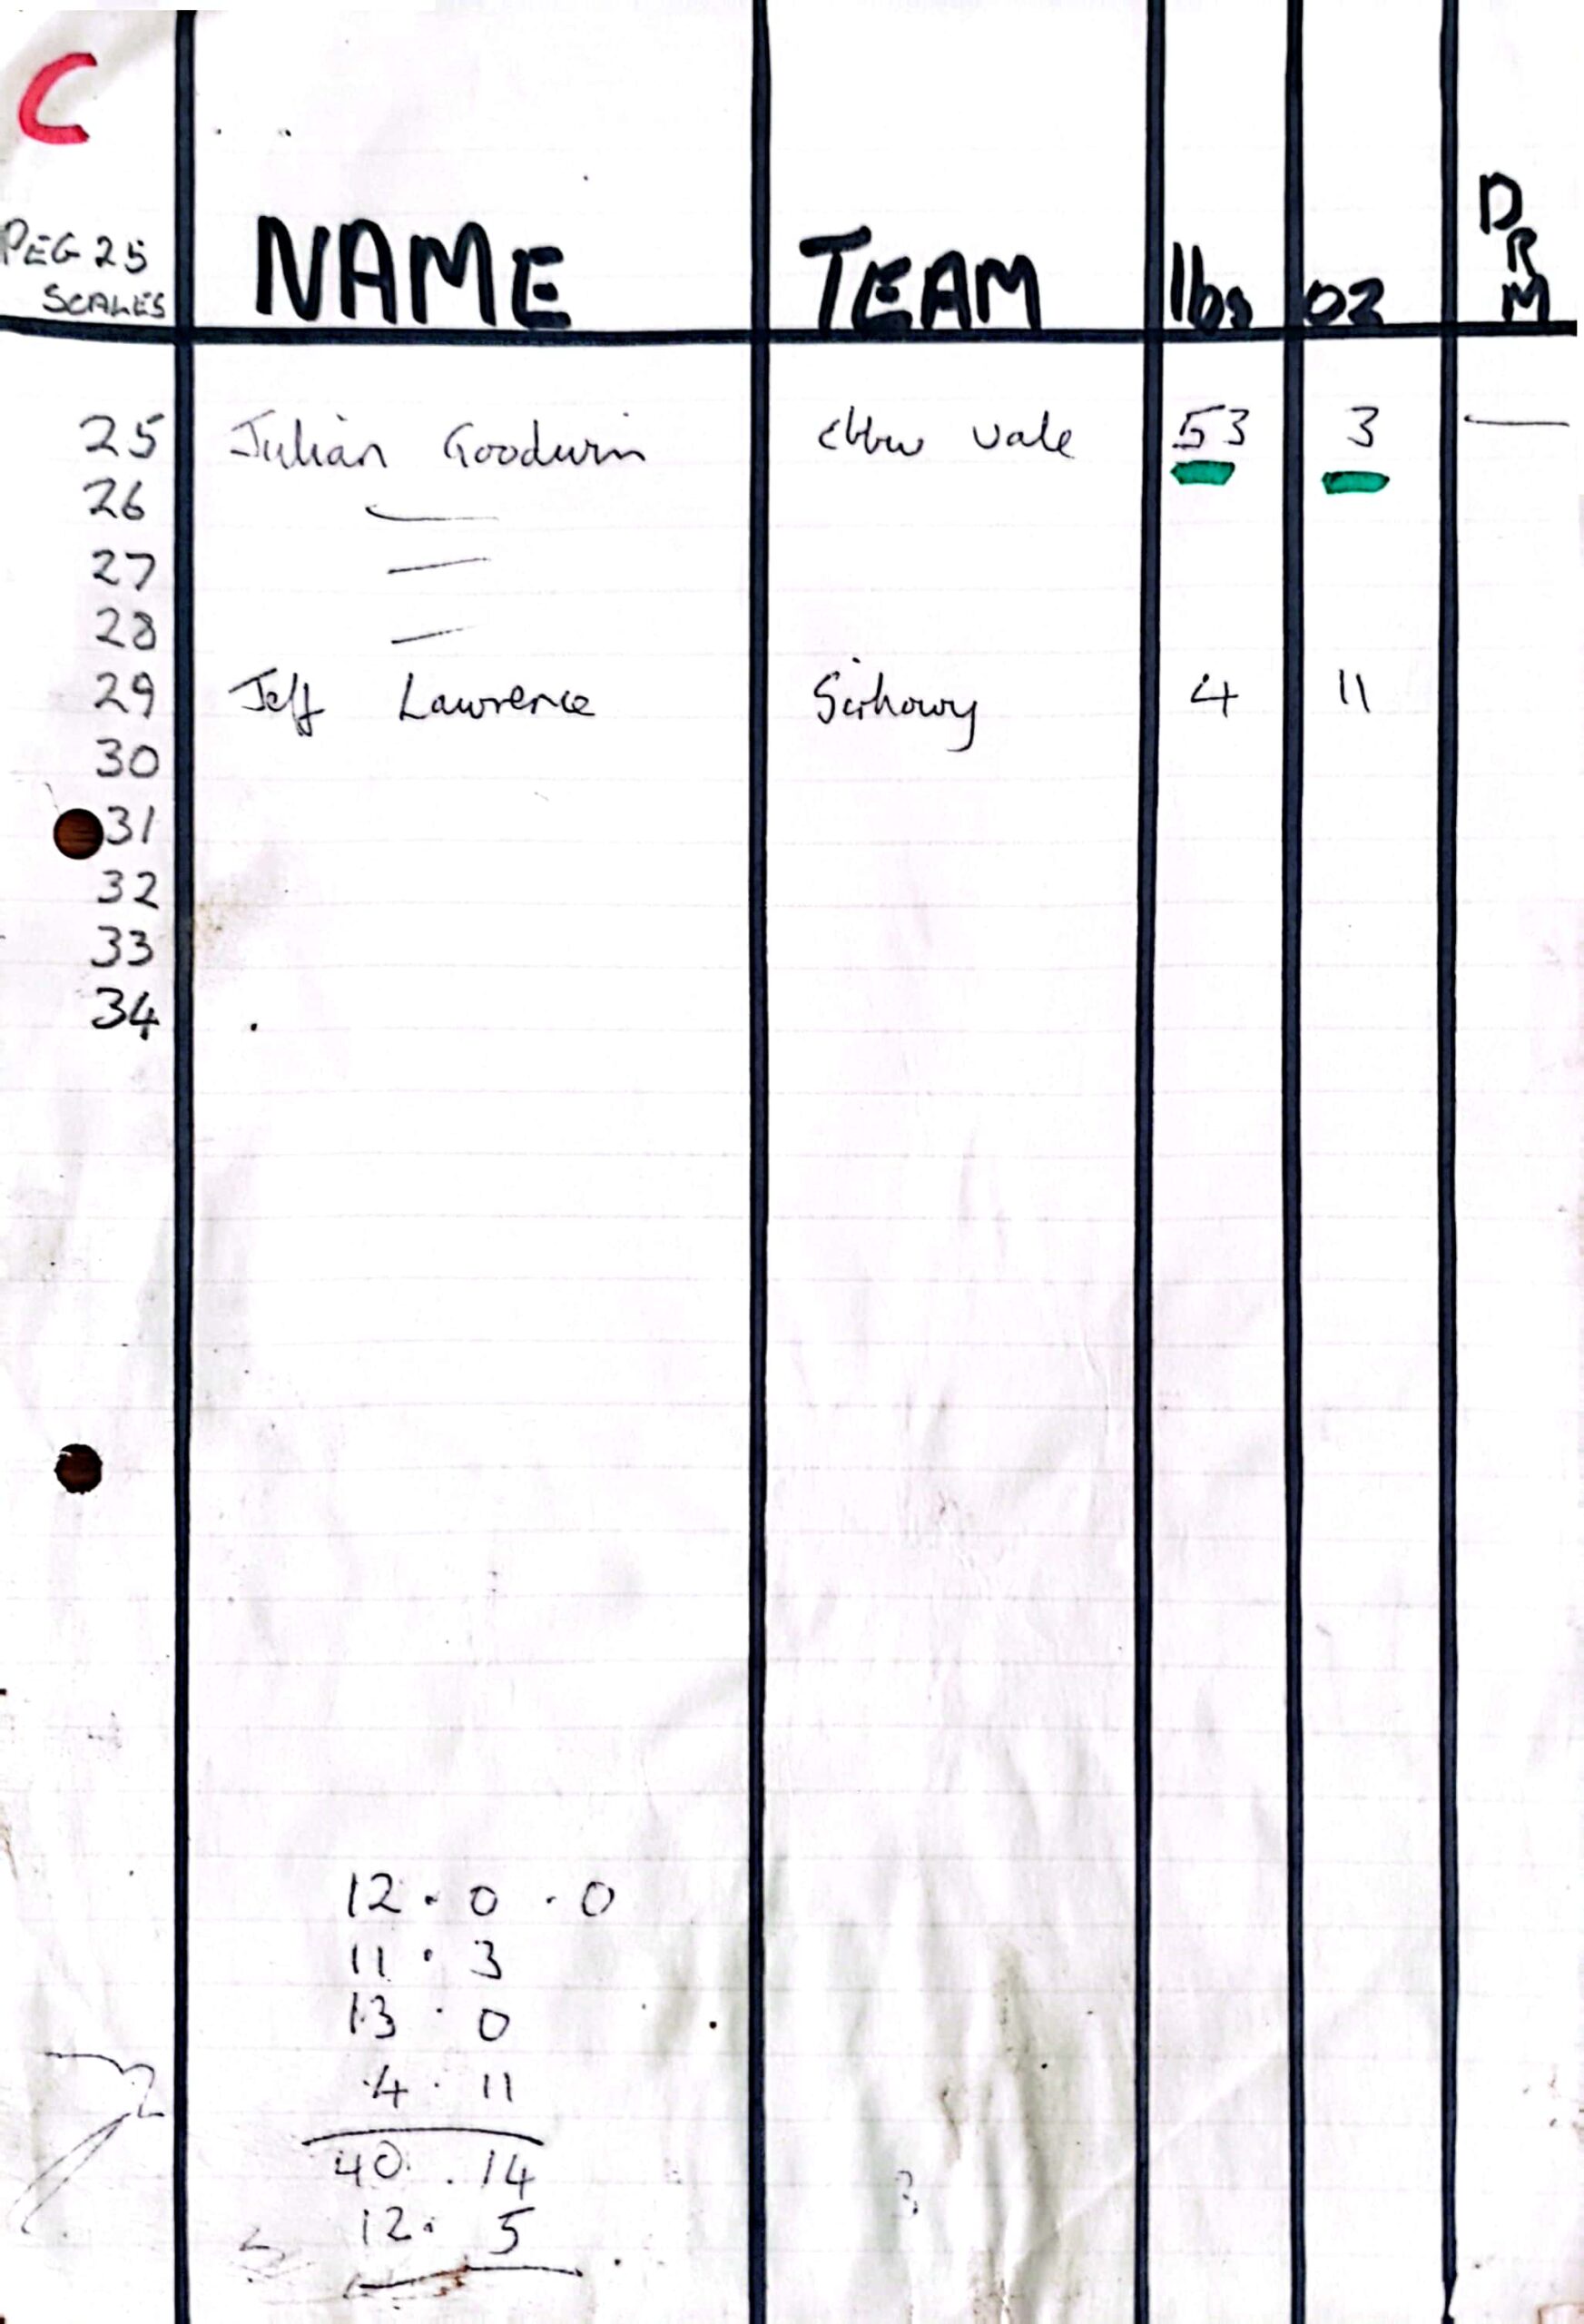 C
PEG 25 SCALES NAME TEAM lbs oz DRM
25 Julian Goodwin ebbw vale 53 3 —
26 —
27 —
28 —
29 Jeff Lawrence Sirhowy 4 11
30
31
32
33
34
12 . 0 . 0
11 . 3
13 . 0
4 . 11
40 . 14
12 . 5